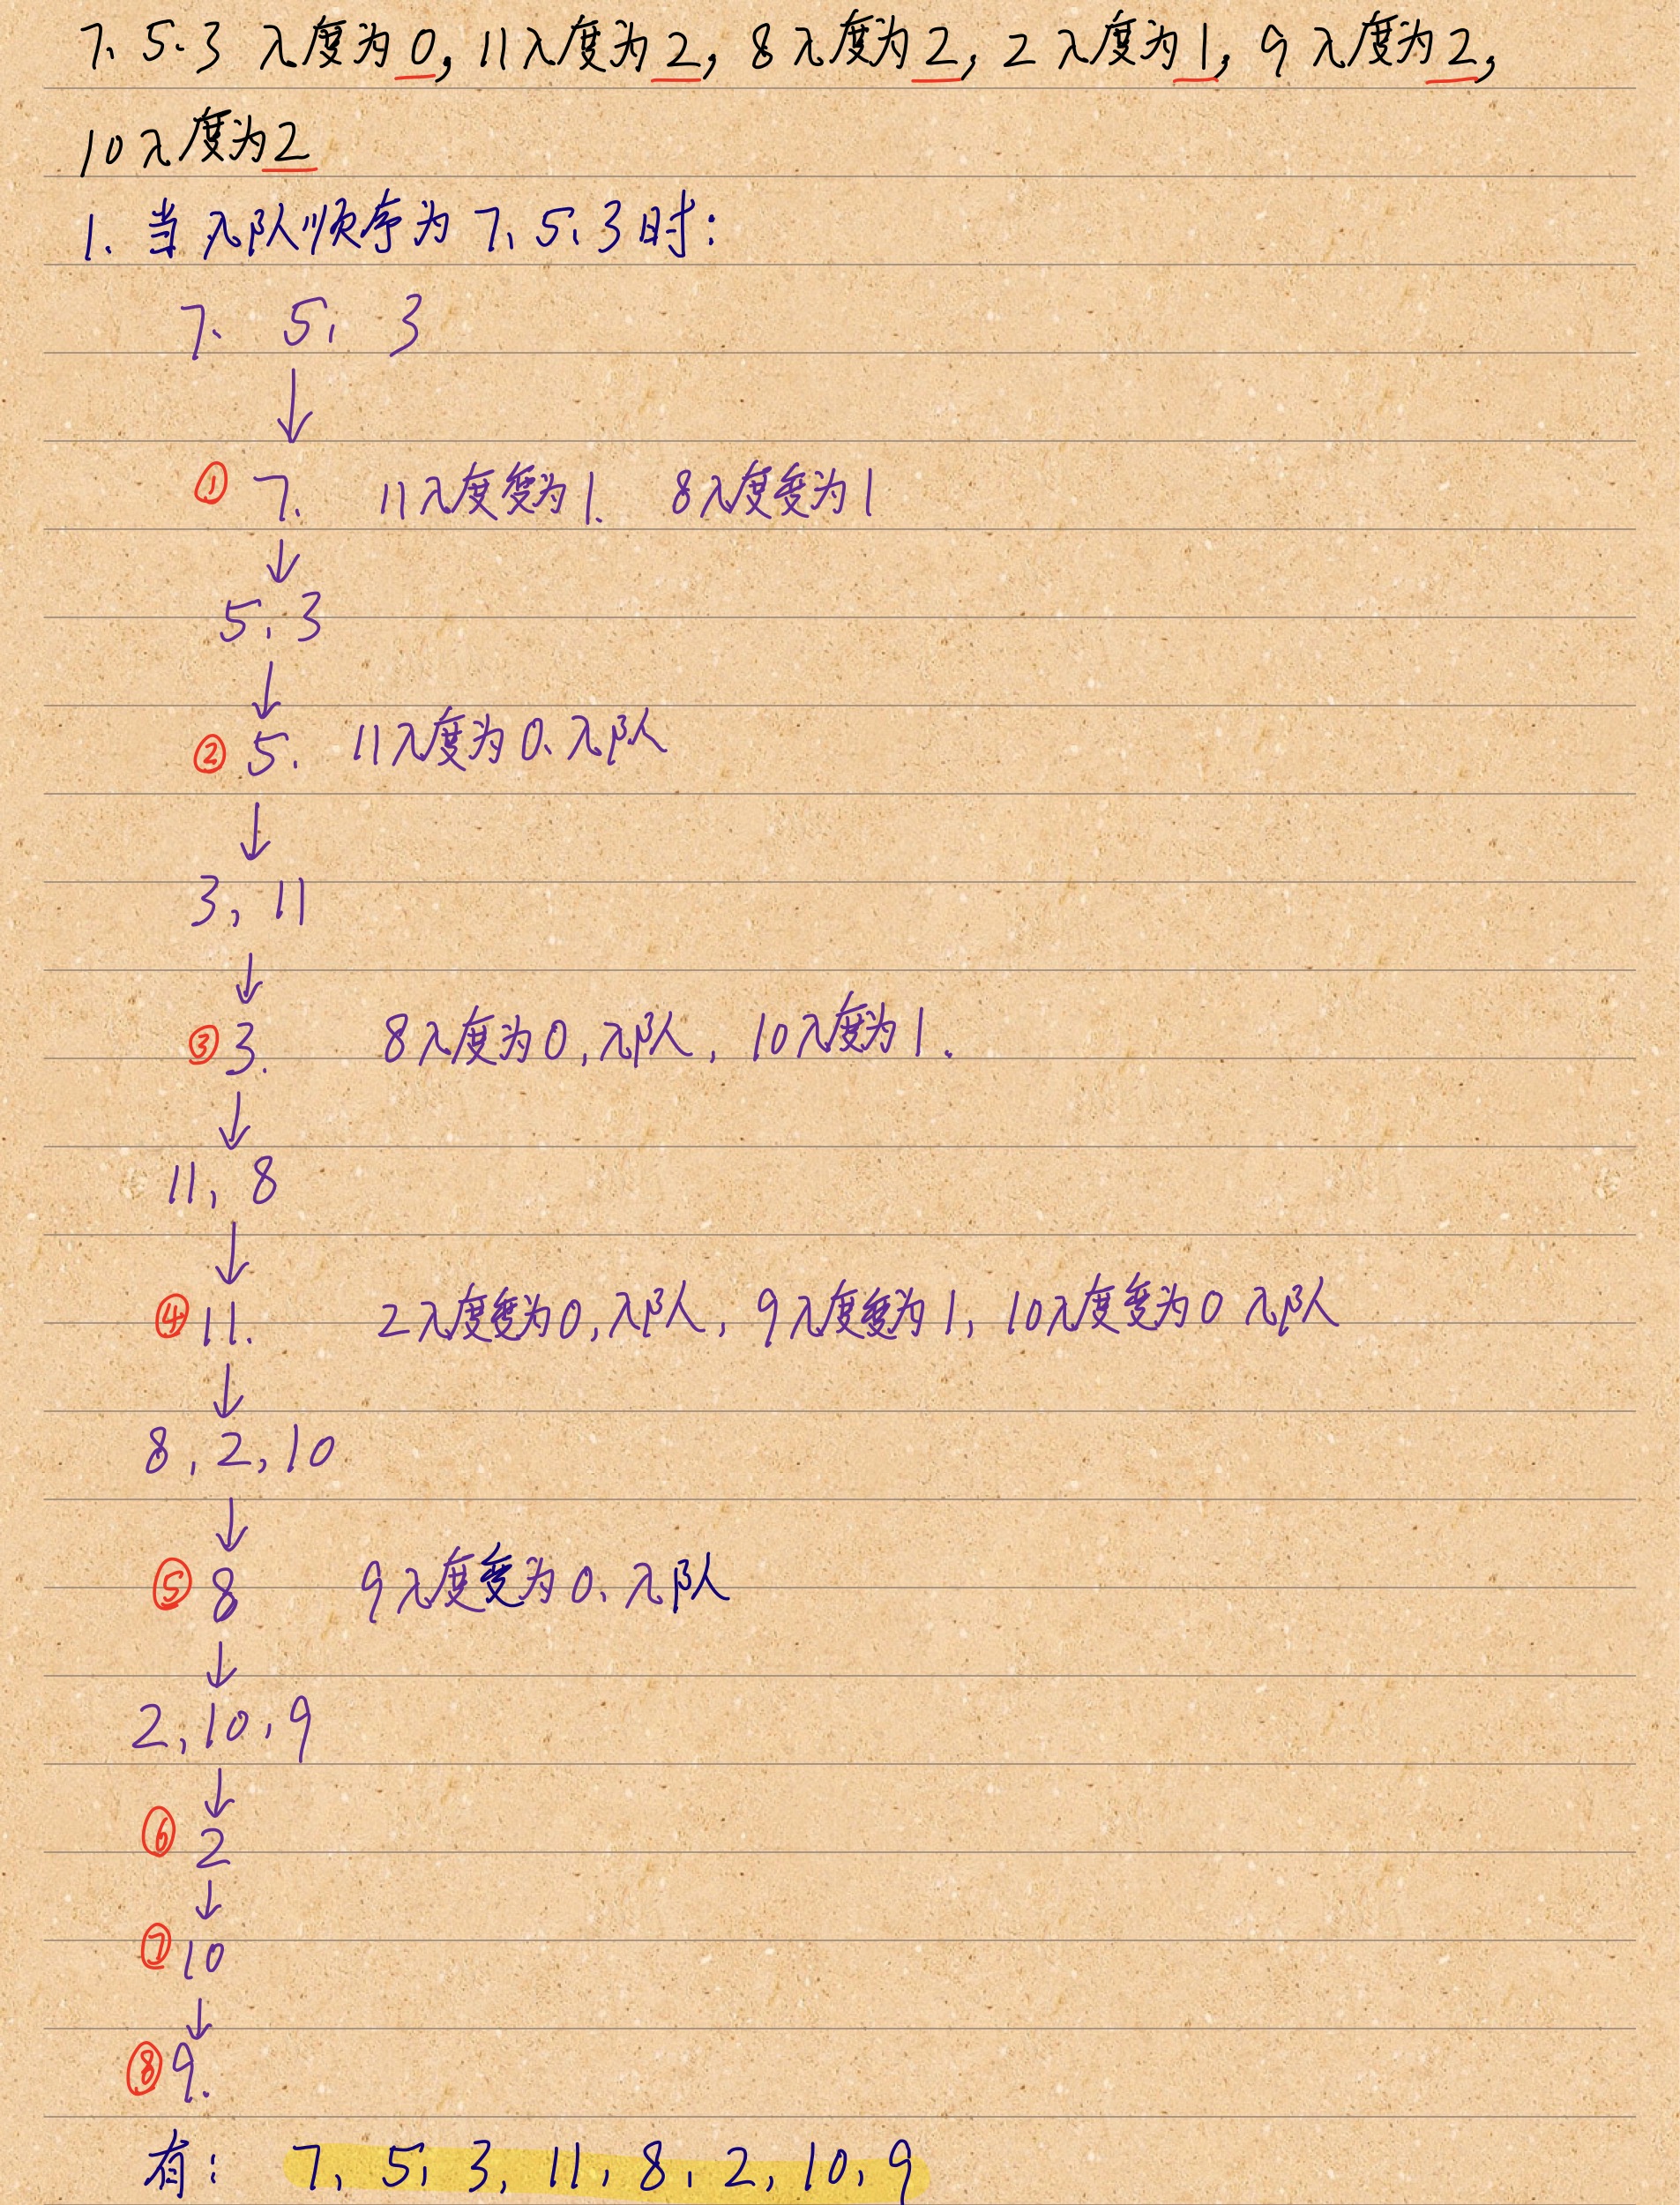 7、5、3 入度为0, 11入度为2, 8入度为2, 2入度为1, 9入度为2,
10入度为2
1. 当入队顺序为7、5、3时:
7、 5、 3
↓
① 7. 11入度变为1. 8入度变为1
↓
5、3
↓
② 5. 11入度为0、入队
↓
3, 11
↓
③ 3. 8入度为0, 入队, 10入度为1.
↓
11, 8
↓
④ 11. 2入度变为0, 入队, 9入度变为1, 10入度变为0 入队
↓
8, 2, 10
↓
⑤ 8 9入度变为0、入队
↓
2, 10, 9
↓
⑥ 2
↓
⑦ 10
↓
⑧ 9.
有: 7, 5, 3, 11, 8, 2, 10, 9